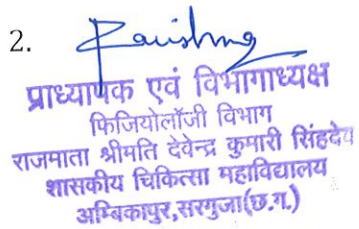 2.
प्राध्यापक एवं विभागाध्यक्ष
फिजियोलॉजी विभाग
राजमाता श्रीमति देवेन्द्र कुमारी सिंहदेव
शासकीय चिकित्सा महाविद्यालय
अम्बिकापुर,सरगुजा(छ.ग.)